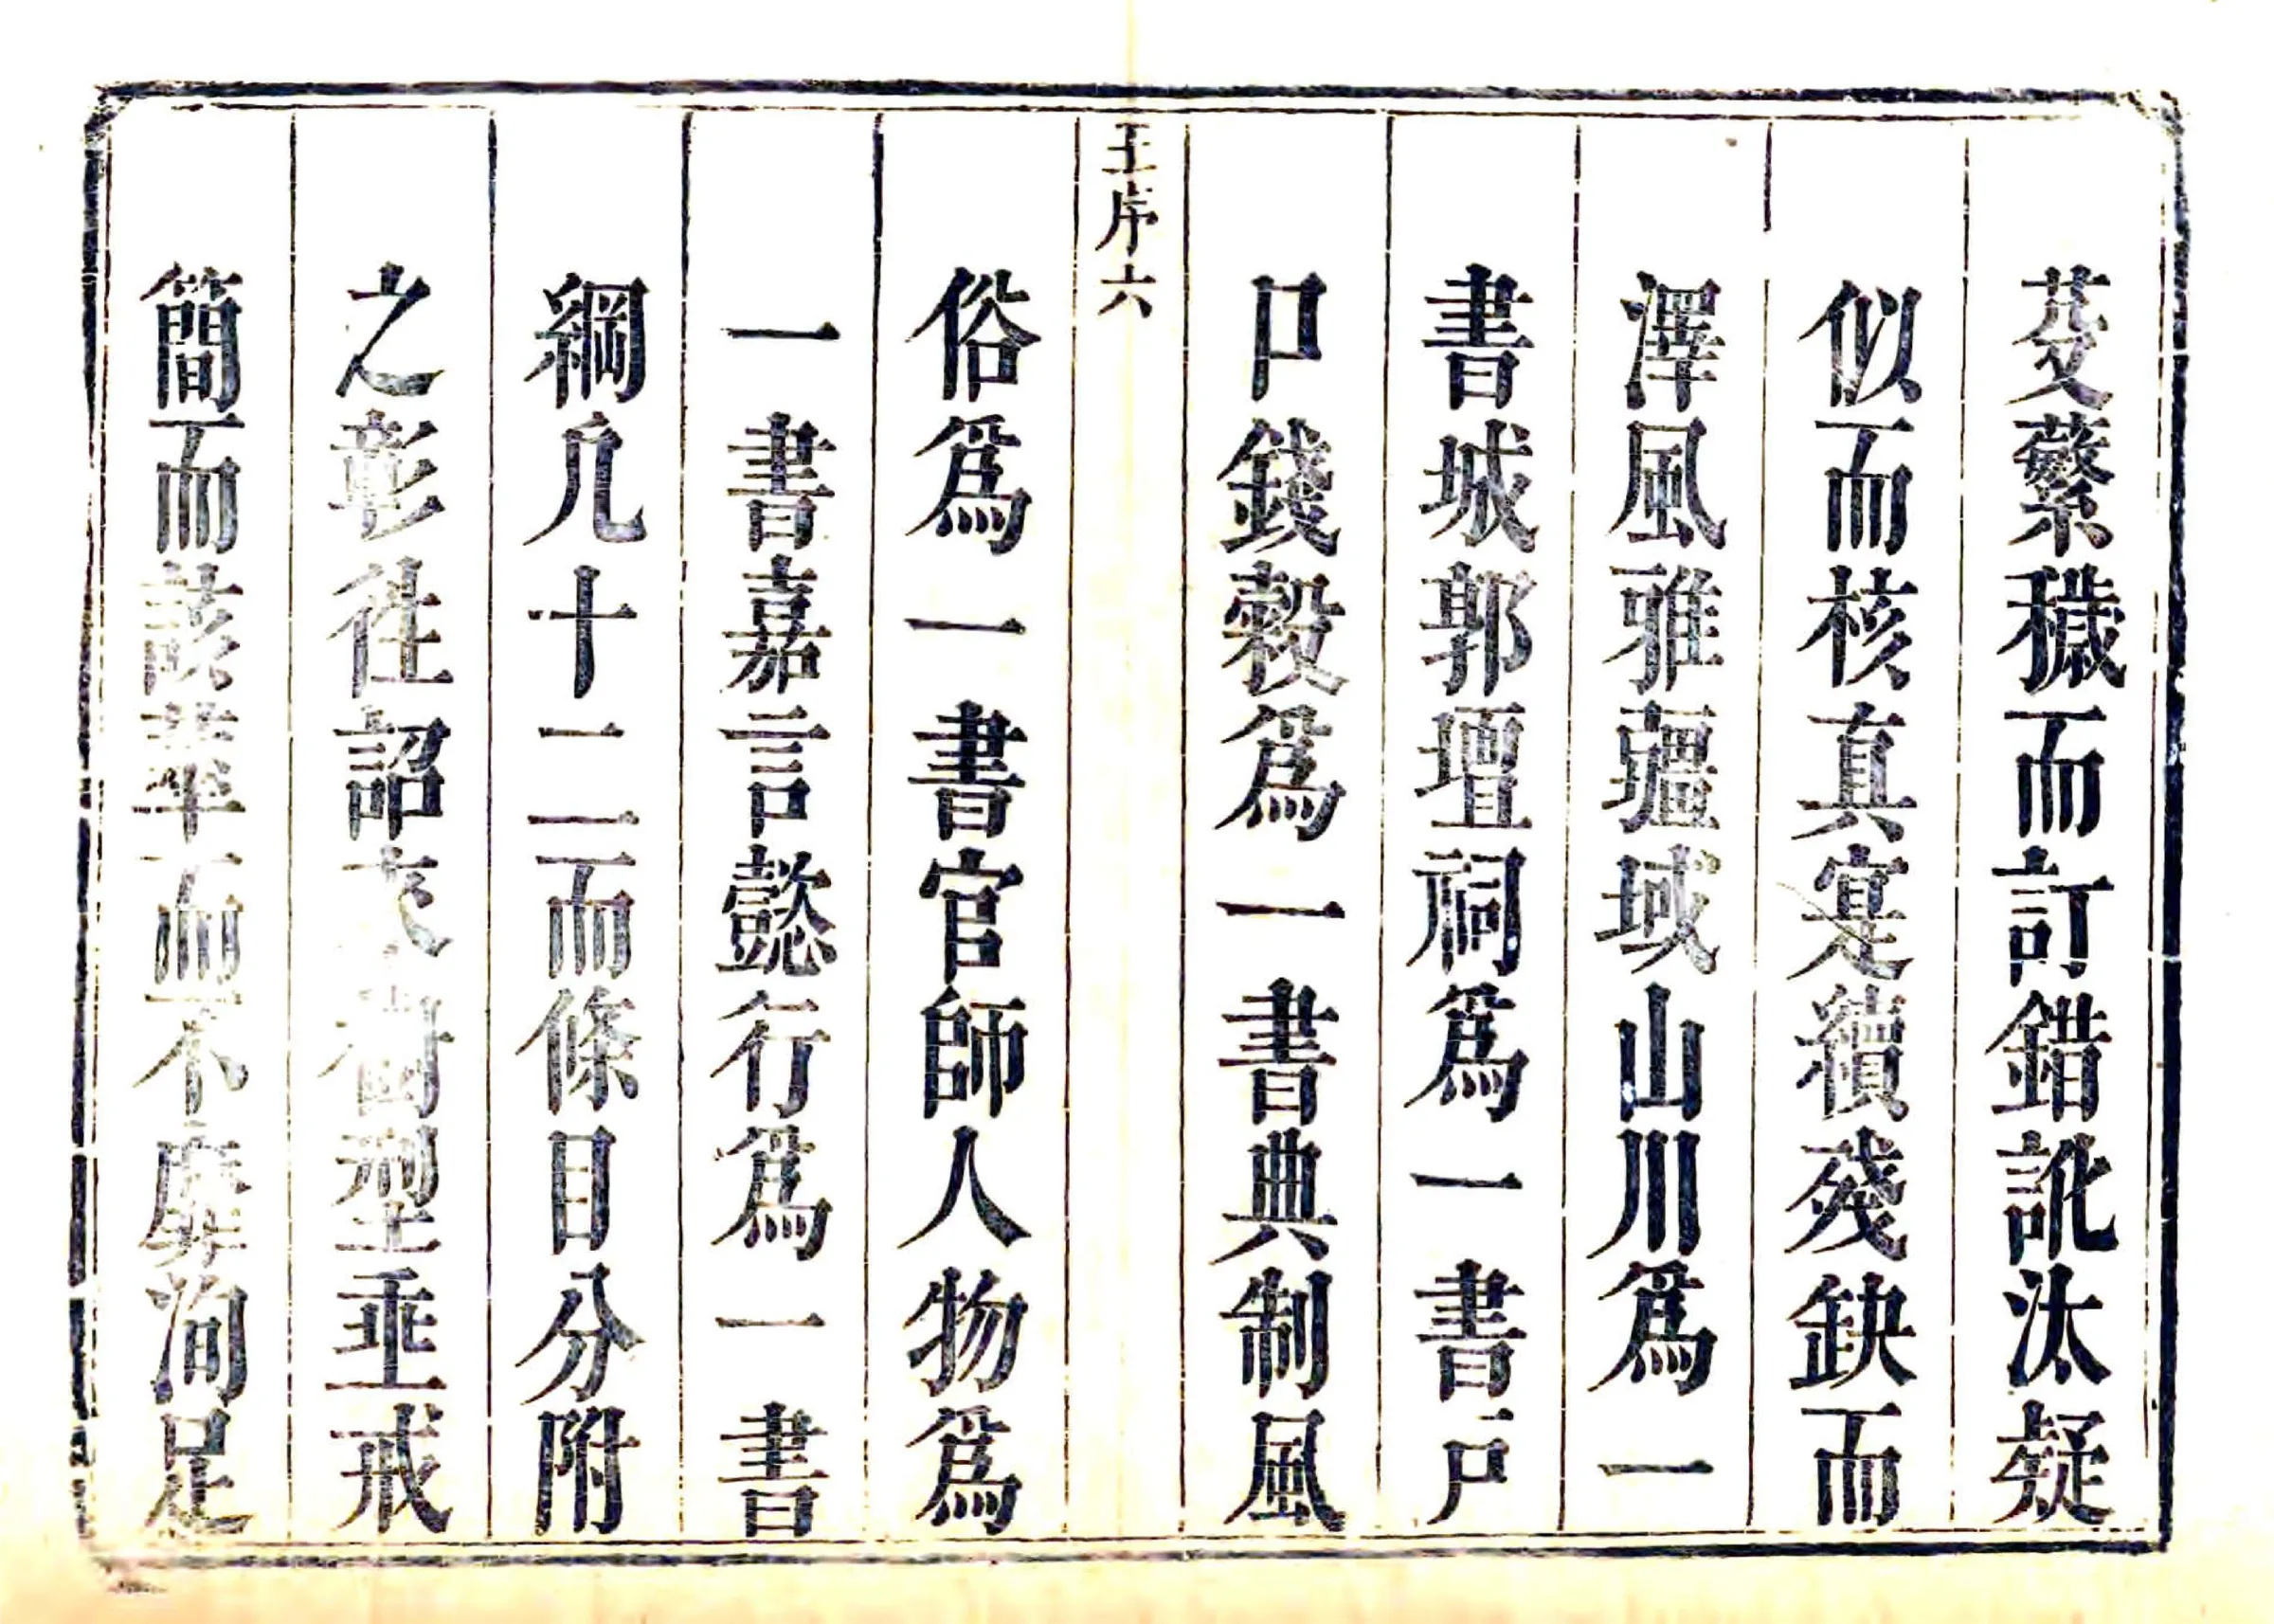 芟蘩穢而訂錯訛汰疑
似而核真寔續殘缺而
澤風雅疆域山川爲一
書城郭壇祠爲一書戸
口錢穀爲一書典制風
王序六
俗爲一書官師人物爲
一書嘉言懿行爲一書
綱凡十二而條目分附
之彰徃詔來樹型垂戒
簡而該華而不靡洵足